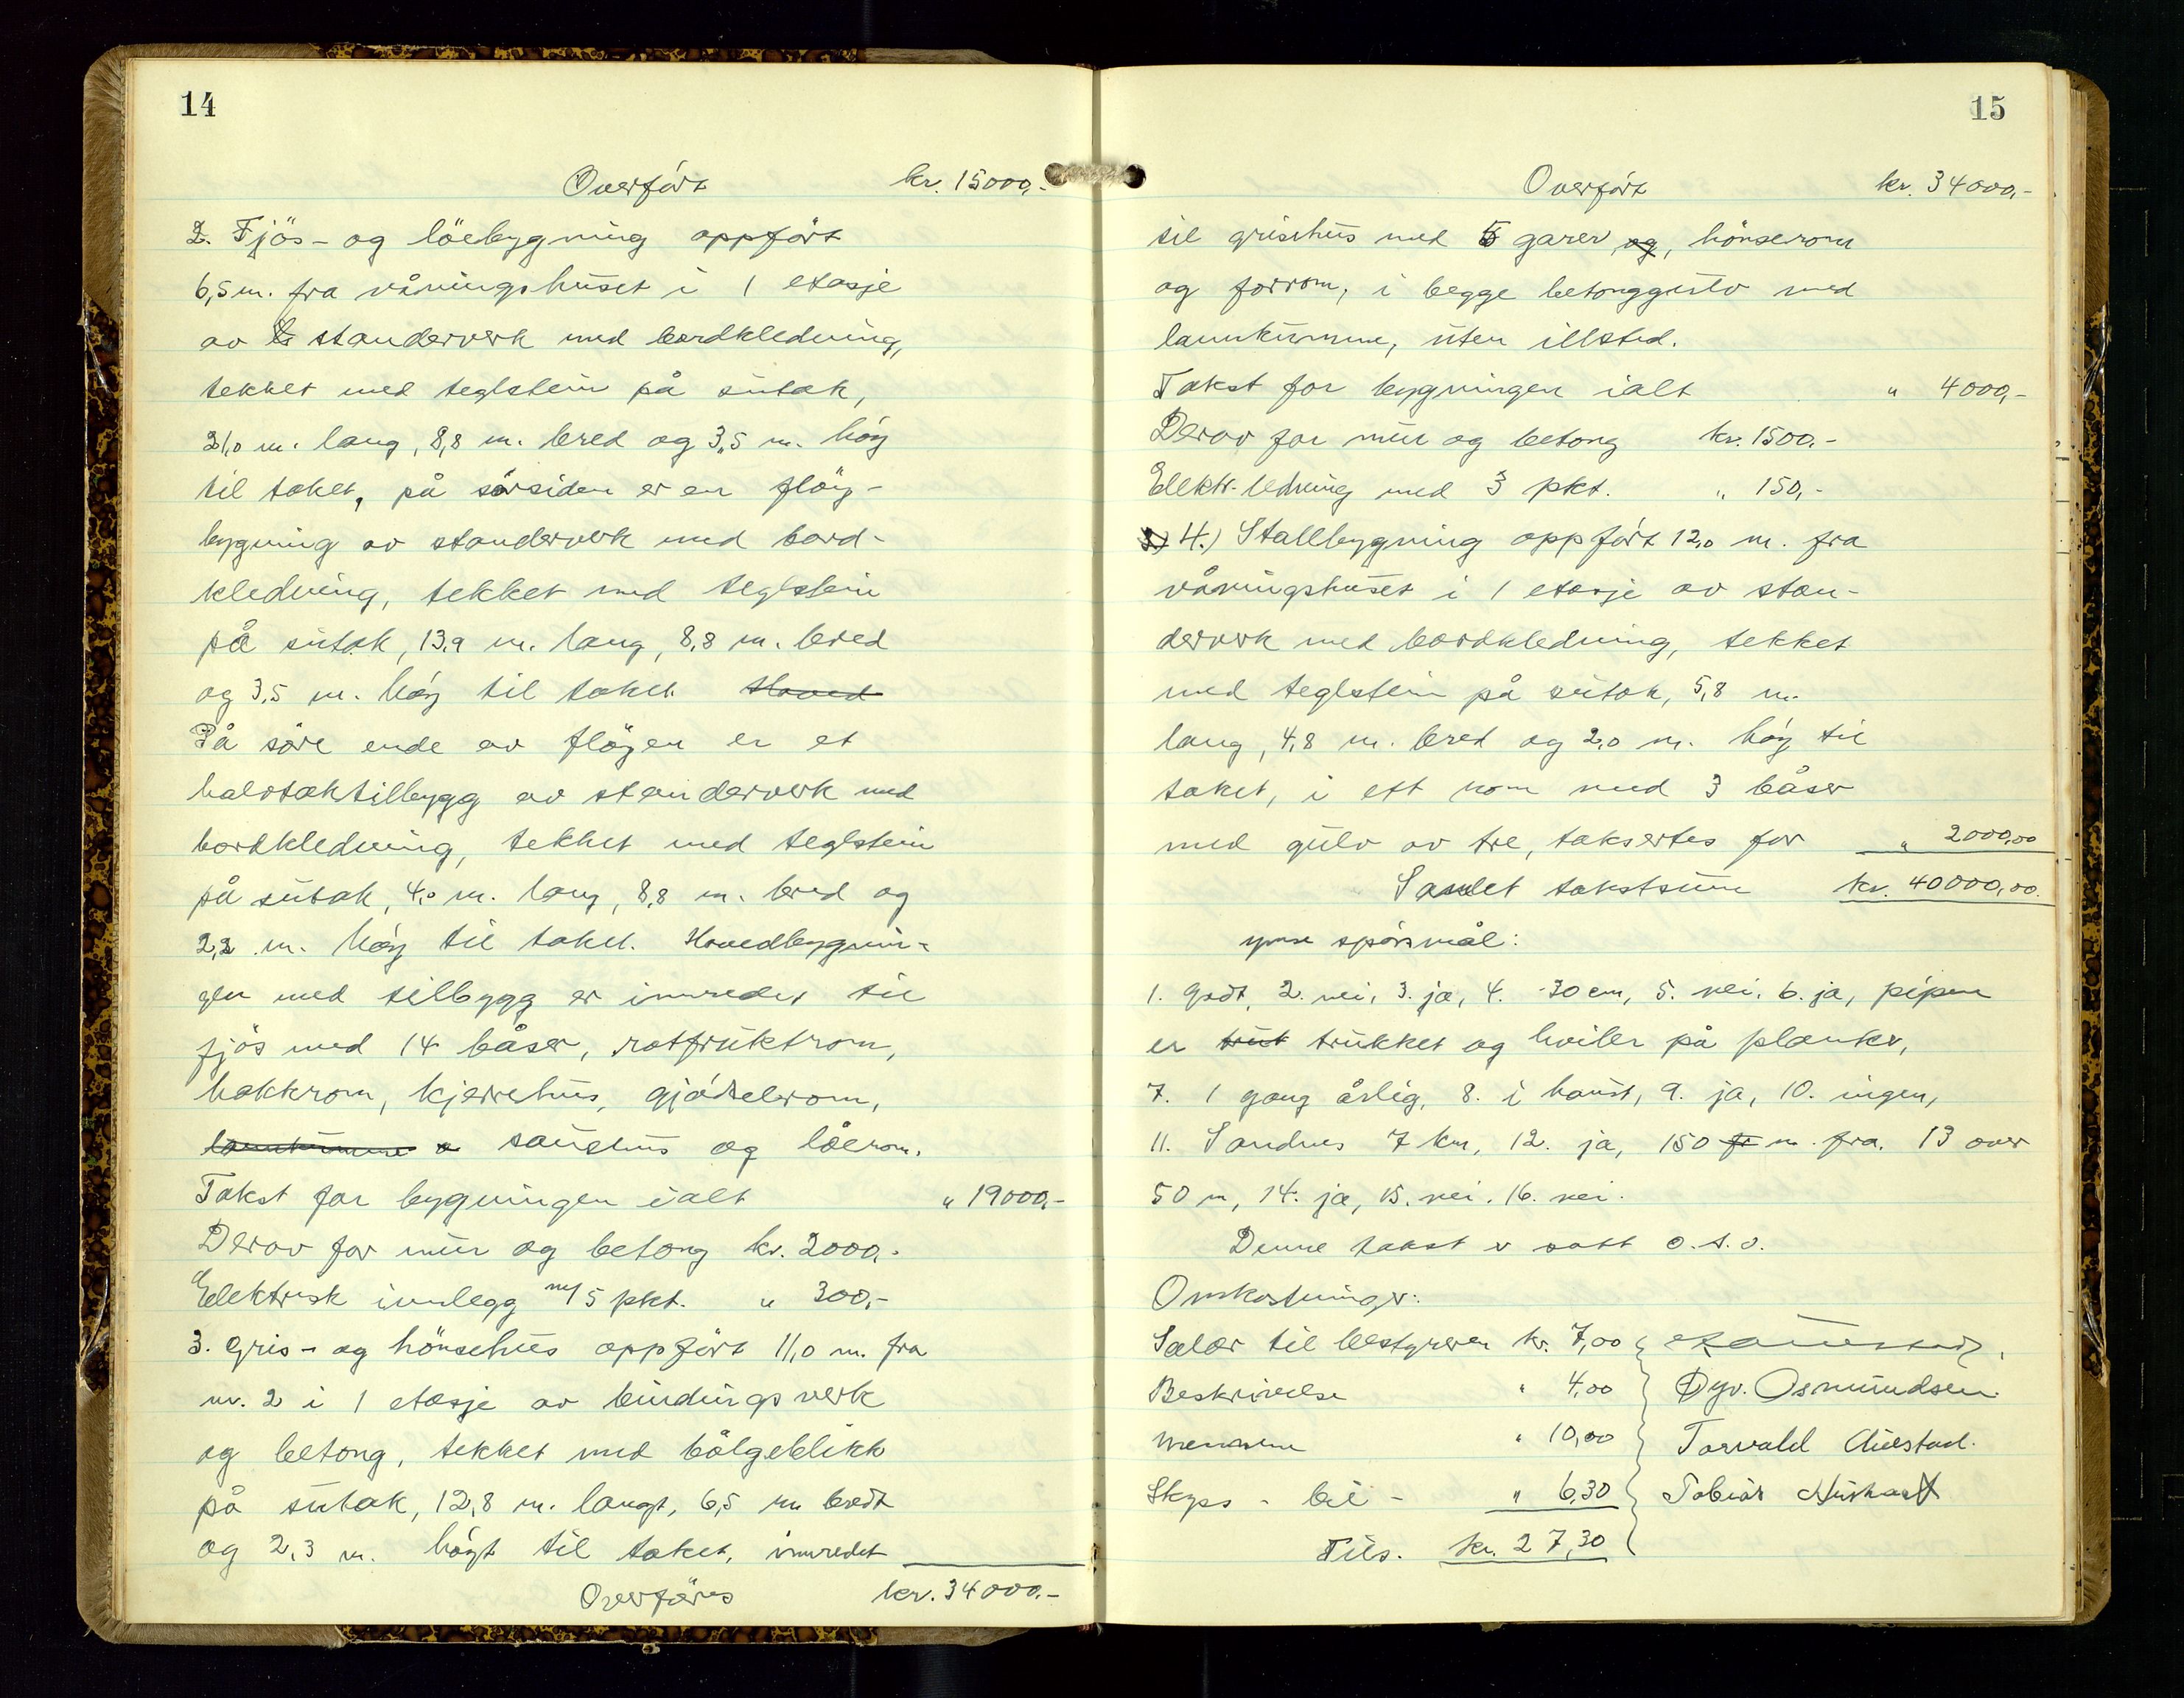 14
Overført kr. 15000,-
2. Fjös- og löebygning oppført
6,5 m. fra våningshuset i 1 etasje
av standerverk med bordkledning,
tekket med teglstein på sutak,
21,0 m. lang, 8,8 m. bred og 3,5 m. høy
til taket, på sørsiden er en fløy-
bygning av standerverk med bord-
kledning, tekket med teglstein
på sutak, 13,9 m. lang, 8,8 m. bred
og 3,5 m. høy til taket. Hoved
På søre ende av fløyen er et
halvtaktilbygg av standerverk med
bordkledning, tekket med teglstein
på sutak, 4,0 m. lang, 8,8 m. bred og
2,2 m. høy til taket. Hovedbygnin-
gen med tilbygg er innredet til
fjøs med 14 båser, rotfruktrom,
hakkrom, kjerrehus, gjødselrom,
lannkumme o sauehus og løerom.
Takst for bygningen ialt " 19000,-
Derav for mur og betong kr. 2000,-
Elektrisk innlegg m/ 5 pkt. " 300,-
3. Gris- og hönsehus oppført 11,0 m. fra
nr. 2 i 1 etasje av bindingsverk
og betong, tekket med bølgeblikk
på sutak, 12,8 m. langt, 6,5 m bredt
og 2,3 m. høgt til taket, innredet
Overføres kr. 34000,-
15
Overført kr. 34000,-
til grisehus med 5 garer og, hönserom
og forrom, i begge betonggulv med
lannkumme, uten illsted.
Takst for bygningen ialt " 4000,-
Derav for mur og betong kr. 1500,-
Elektr. ledning med 3 pkt. " 150,-
3) 4.) Stallbygning oppført 12,0 m. fra
våningshuset i 1 etasje av stan-
derverk med bordkledning, tekket
med teglstein på sutak, 5,8 m.
lang, 4,8 m. bred og 2,0 m. høy til
taket, i ett rom med 3 båser
med gulv av tre, taksertes for " 2000,00
Samlet takstsum kr. 40000,00.
ymse spørsmål:
1. godt, 2. nei, 3. ja, 4. -30 cm, 5. nei. 6. ja, pipen
er trut trukket og hviler på planker,
7. 1 gang årlig, 8. i haust, 9. ja, 10. ingen,
11. Sandnes 7 km, 12. ja, 150 fr m. fra. 13 over
50 m, 14. ja, 15. nei. 16. nei.
Denne takst er satt o.s.v.
Omkostninger:
Salær til bestyreren kr. 7,00
Beskrivelse " 4,00 Øyv. Osmundsen.
Mennene " 10,00 Torvald Auestad.
Skyss - bil - " 6,30 Tobias
Tils. kr. 27,30